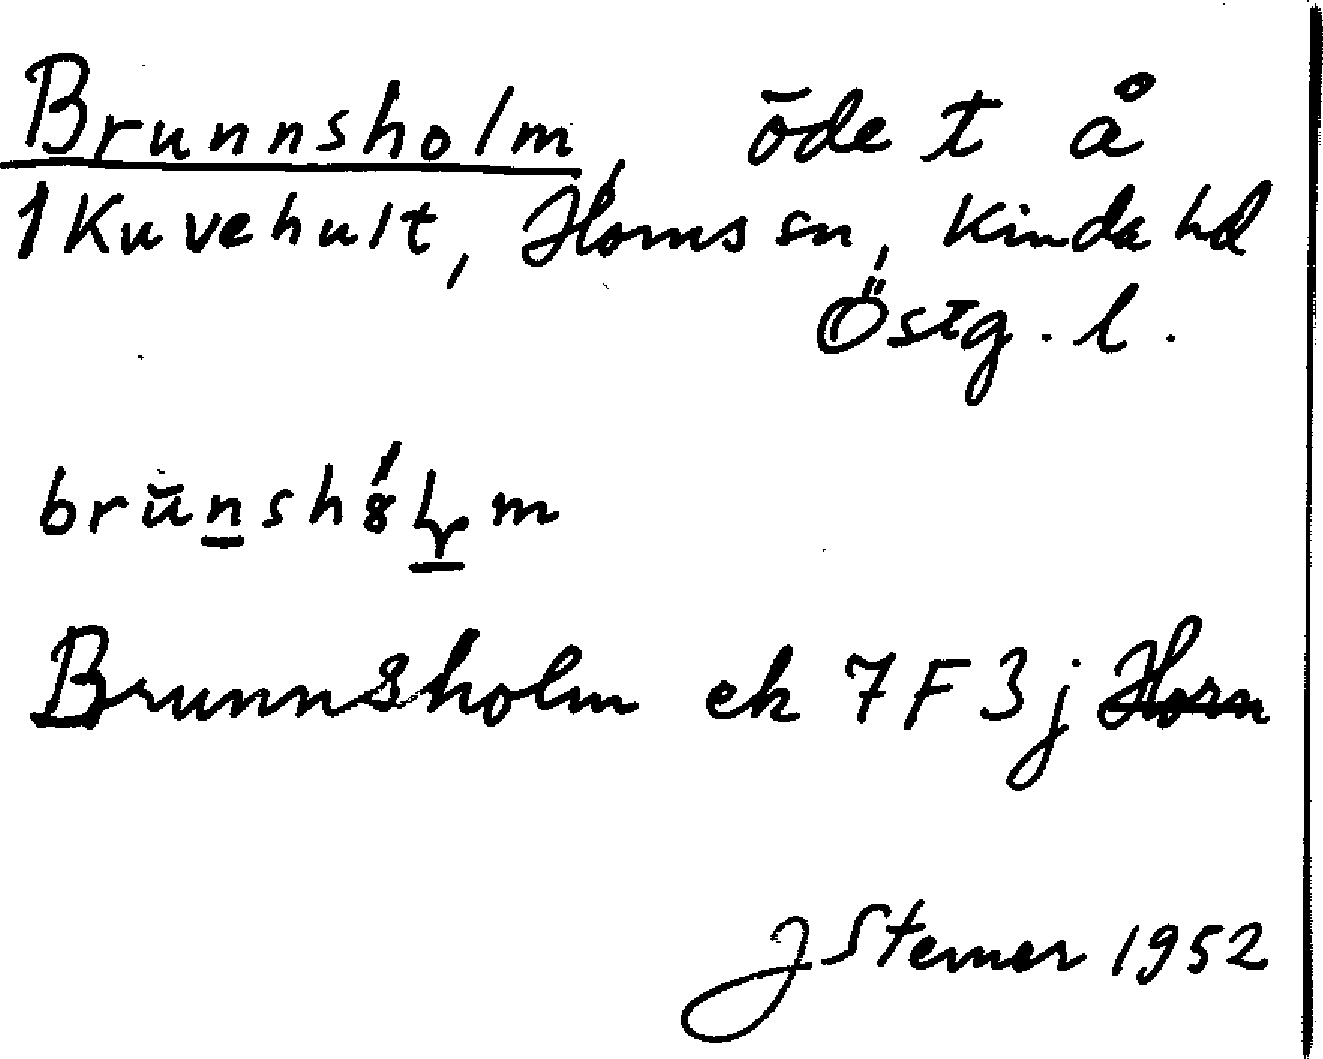 Brunnsholm, öde t å
1 Kuvehult, Horns sn, Kinda hd
Östg. l.
Brunnsholm ek 7 F 3 j Horn
J Sterner 1952